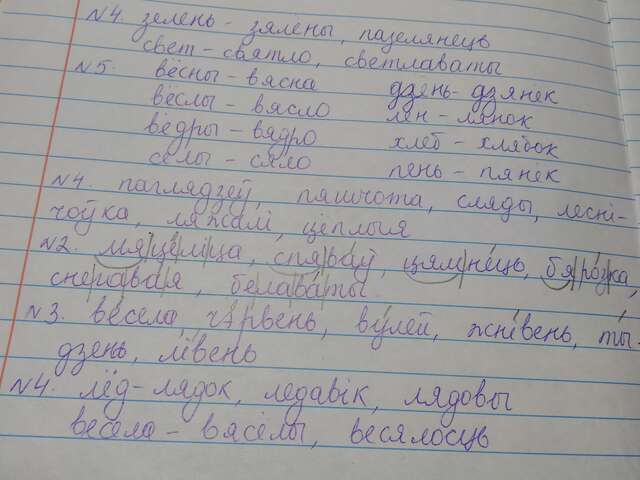 №4. зелень - зялены, пазелянець
свет - святло, светлаваты
№5. вёсны - вясна дзень - дзянёк
вёслы - вясло лён - лянок
вёдры - вядро хлеб - хлябок
сёлы - сяло пень - пянёк
№4. паглядзеў, пяшчота, сляды, лесні-
чоўка, ляжалі, цёплыя
№2. мяцеліца, спяваў, цямнець, бярозка,
снегавая, белаваты.
№3. весела, чэрвень, вулей, жнівень, ты-
дзень, лівень
№4. лёд - лядок, ледавік, лядовы
весела - вясёлы, весялосць